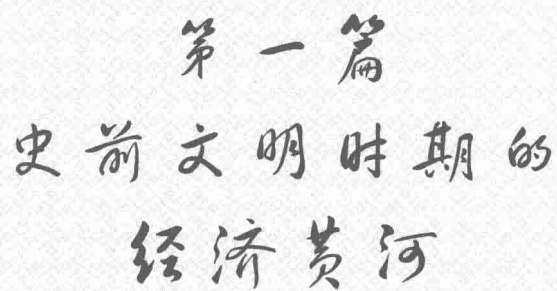 第一篇
史前文明时期的
经济黄河